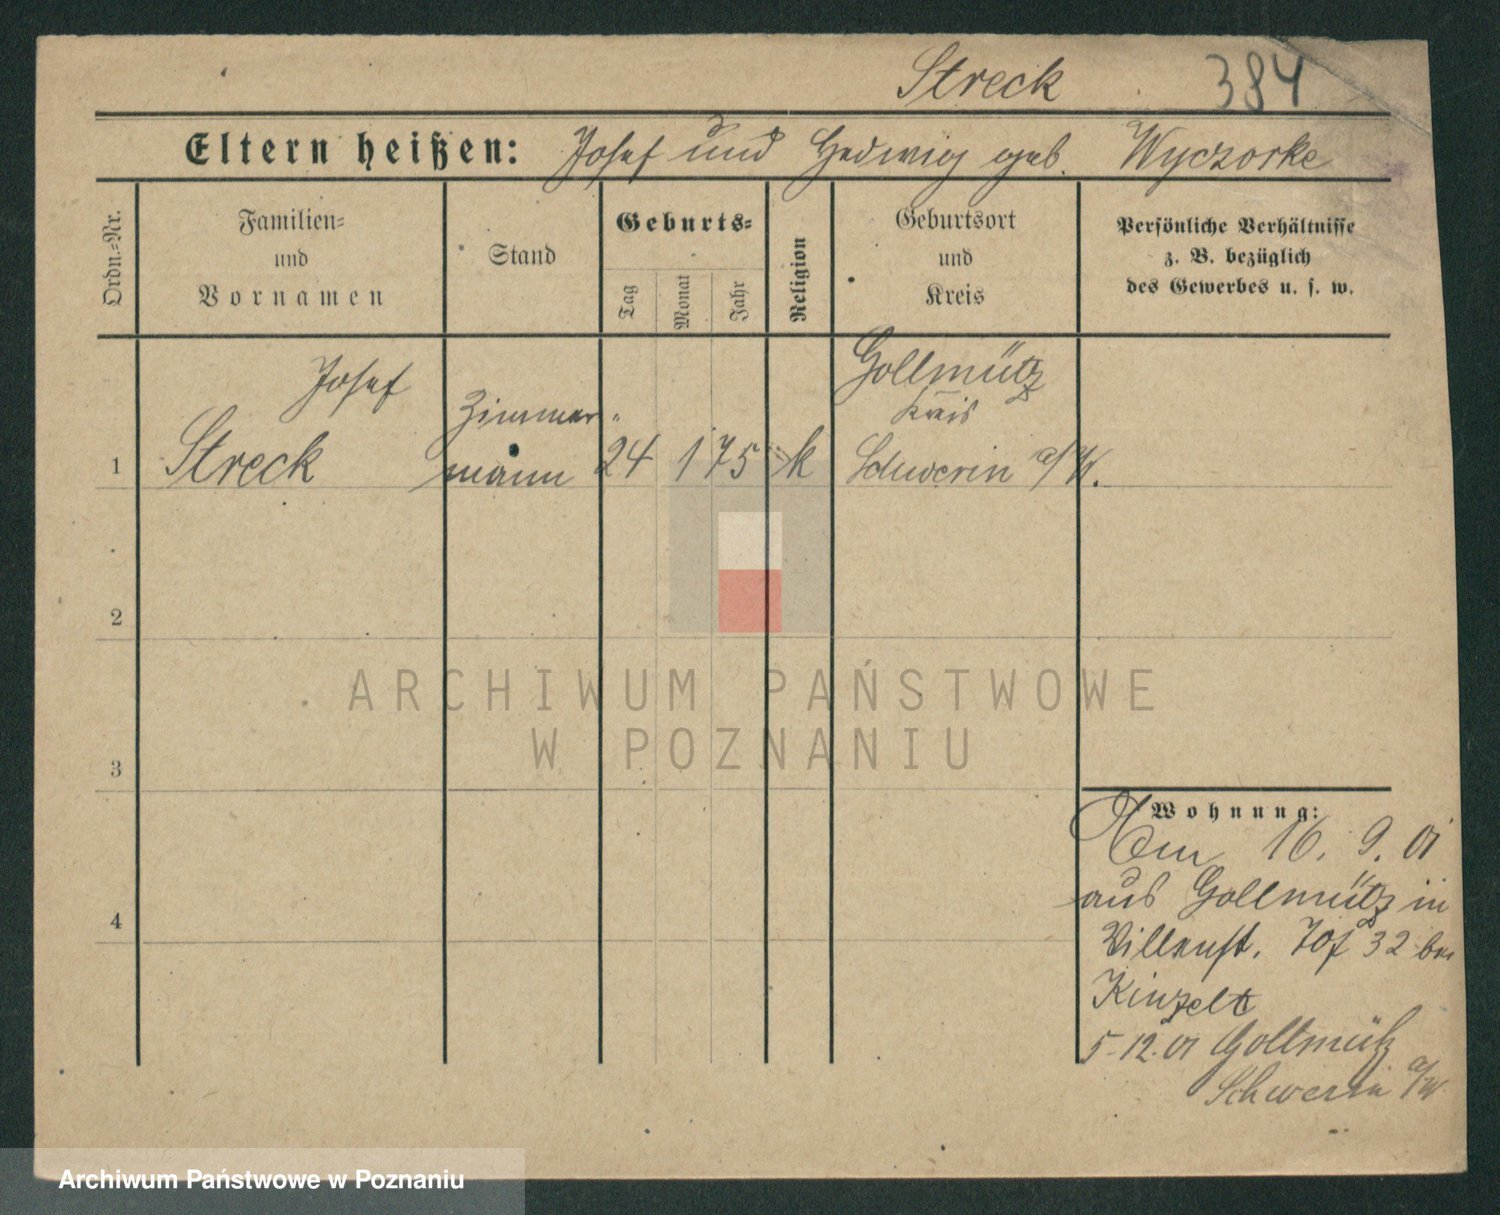 Streck 384
Eltern heißen: Josef und Hedwig geb. Wyczorke
Ordn.=Nr.
Familien=
und
Vornamen
Stand
Geburts=
Tag
Monat
Jahr
Religion
Geburtsort
und
Kreis
Persönliche Verhältnisse
z. B. bezüglich
des Gewerbes u. s. w.
Josef Gollmütz
Zimmer Kreis
1 Streck mann 24 1 75 k Schwerin a/W.
2
ARCHIWUM PAŃSTWOWE
W POZNANIU
3
Wohnung:
16. 9. 01
aus Gollmütz in
32 bei
Kinzelt
4
5-12.01 Gollmütz
Schwerin a/W.
Archiwum Państwowe w Poznaniu